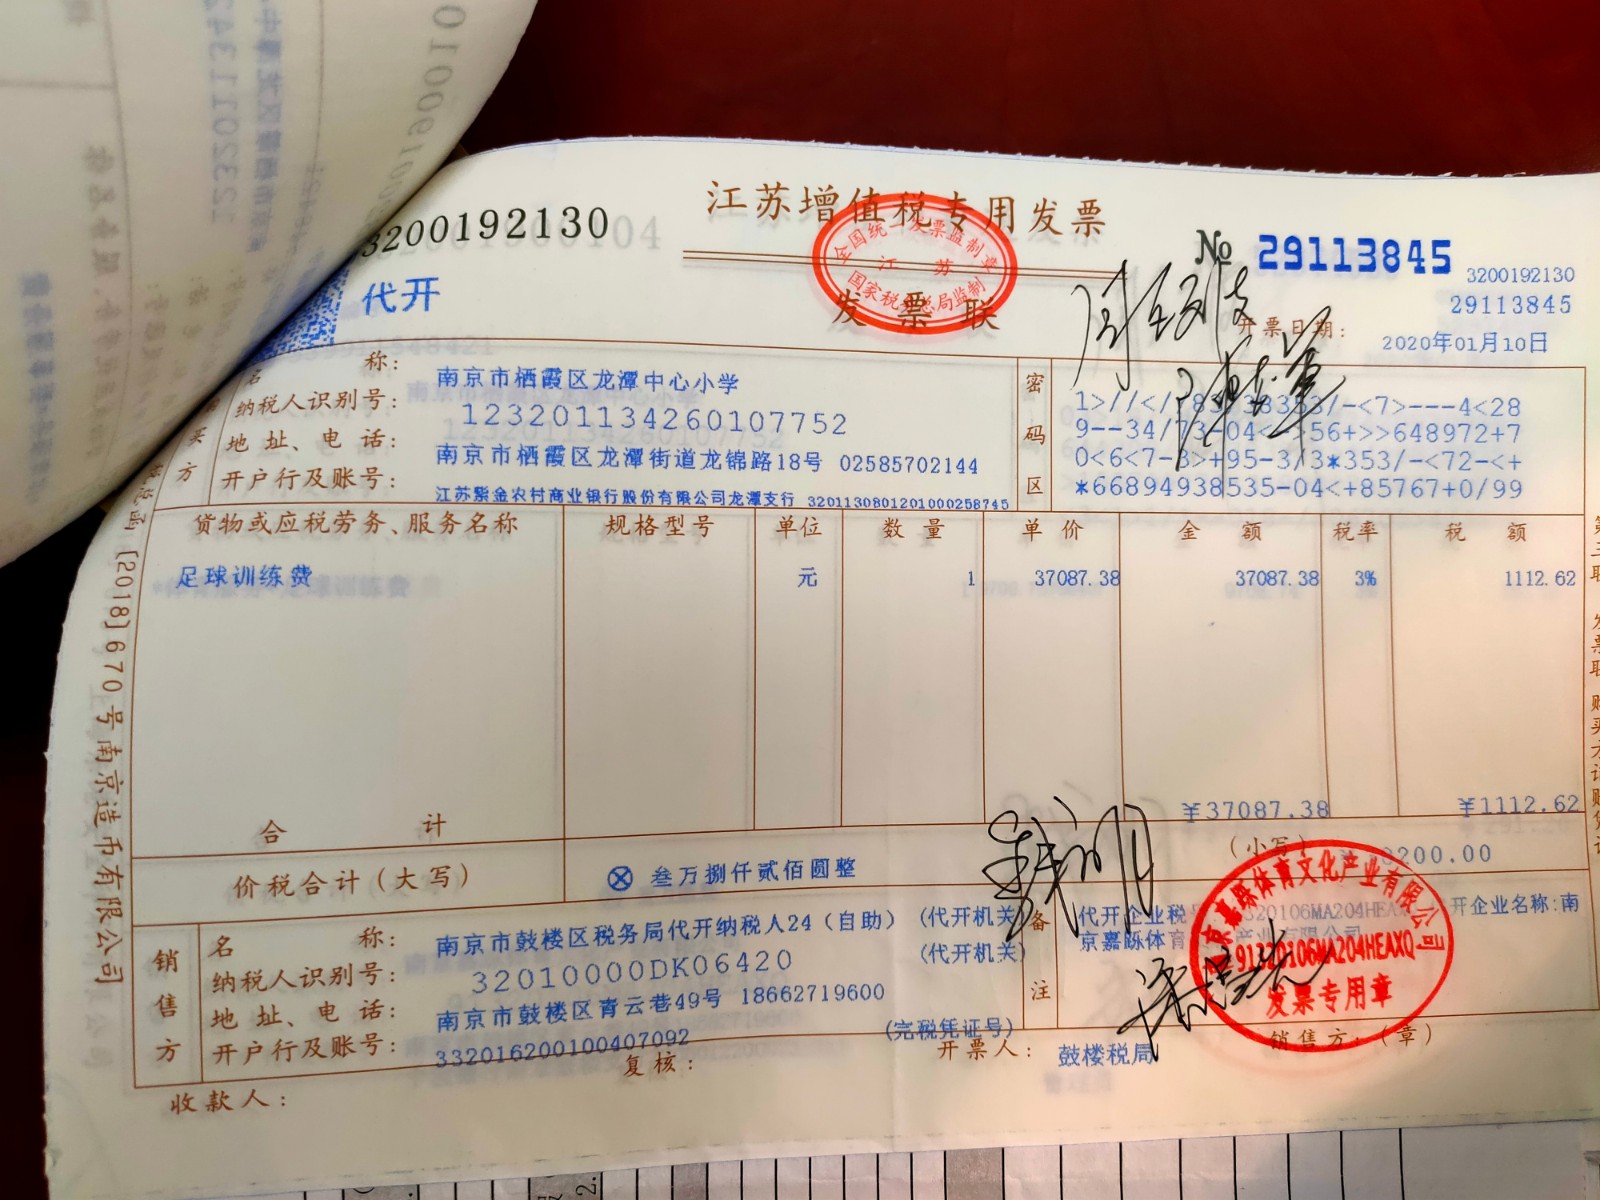 3200192130
江苏增值税专用发票
No 29113845
3200192130
29113845
代开
全国统一发票监制章
江苏
国家税务总局监制
发票联
开票日期:
2020年01月10日
名称: 南京市栖霞区龙潭中心小学
纳税人识别号: 123201134260107752
地址、电话: 南京市栖霞区龙潭街道龙锦路18号 02585702144
开户行及账号: 江苏紫金农村商业银行股份有限公司龙潭支行 3201130801201000258745
买方
密码区
0<6<7-3>+95-3/3*353/-<72-<+
*66894938535-04<+85767+0/99
货物或应税劳务、服务名称 规格型号 单位 数量 单价 金额 税率 税额
足球训练费 元 1 37087.38 37087.38 3% 1112.62
合计 ¥37087.38 ¥1112.62
价税合计(大写) ⊗ 叁万捌仟贰佰圆整 (小写) 200.00
销售方
名称: 南京市鼓楼区税务局代开纳税人24(自助) (代开机关)
纳税人识别号: 32010000DK06420 (代开机关)
地址、电话: 南京市鼓楼区青云巷49号 18662719600
开户行及账号: 332016200100407092 (完税凭证号)
备注
代开企业税 320106MA204HEAX 开企业名称:南
京嘉跞体育 产业有限公司
京嘉跞体育文化产业有限公司
91320106MA204HEAXQ
发票专用章
收款人:
复核:
开票人: 鼓楼税局
销售方:(章)
[2018]670号南京造币有限公司